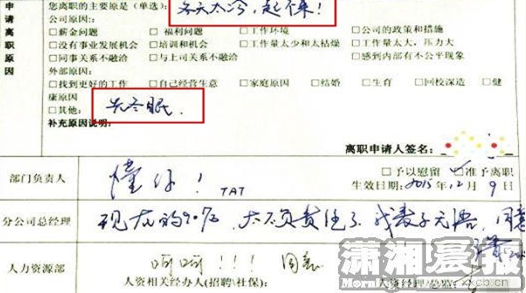 申请离职原因
您离职的主要原是(单选): 冬天太冷,起不来!
公司原因:
□薪金问题 □福利问题 □工作环境 □公司的政策和措施
□没有事业发展机会 □培训和机会 □工作量太少和太枯燥 □工作量太大,压力大
□同事关系不融洽 □与上司关系不融洽 □感到内部有不公平现象
外部原因:
□找到更好的工作 □自己经营生意 □家庭原因 □结婚 □生育 □回校深造 □健
康原因
□其他: 去冬眠.
补充原因说明:
离职申请人签名:
部门负责人 懂你! TAT □予以慰留 准予离职
生效日期:2015年12月9日
分公司总经理 现在的90后,太不负责任了,我表示无语,同意
人力资源部 呵呵!!! 同意
人资相关经办人(招聘\社保):
潇湘晨报